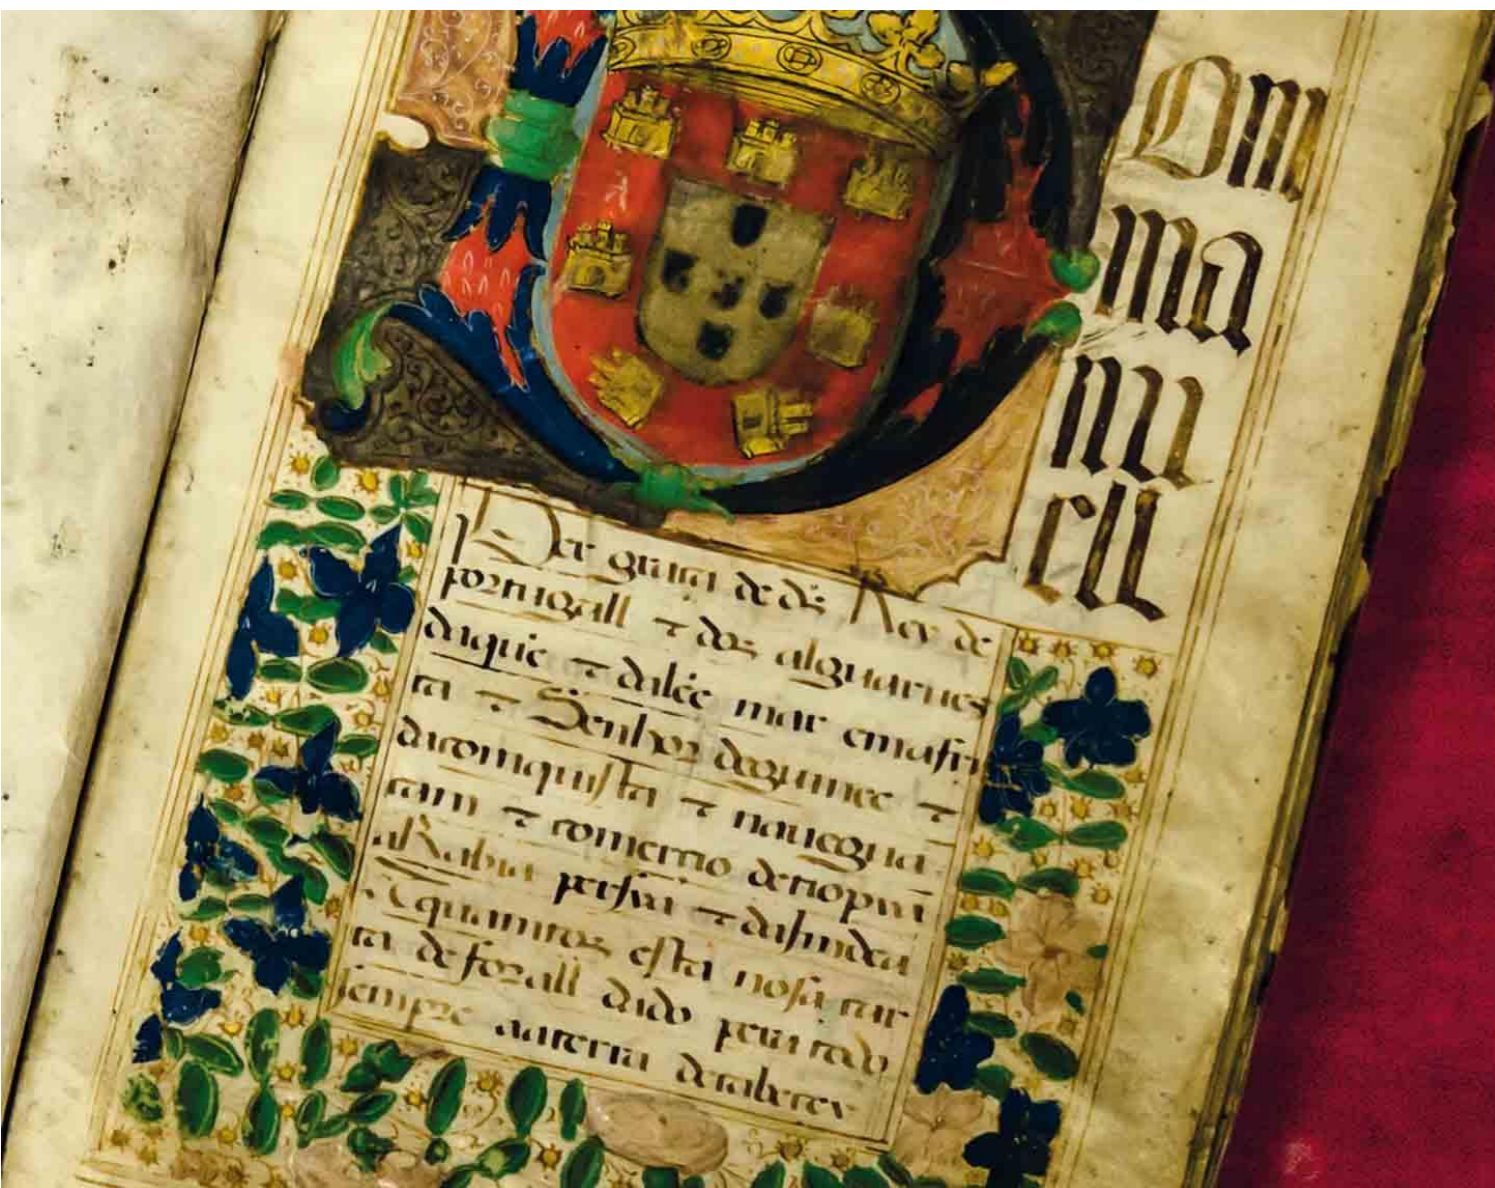 Om
ma
nu
ell
Per graça de ds̃ Rey de
portugall ⁊ dos alguarues
daquẽ ⁊ dalẽe mar em afri
ca ⁊ Senhor de guinee ⁊
da comquista ⁊ nauegua
cam ⁊ comercio detiopia
aRabia persia ⁊ da Jndea
A quamtos esta nosa car
ta de forall dado pera todo
sempre aa terra